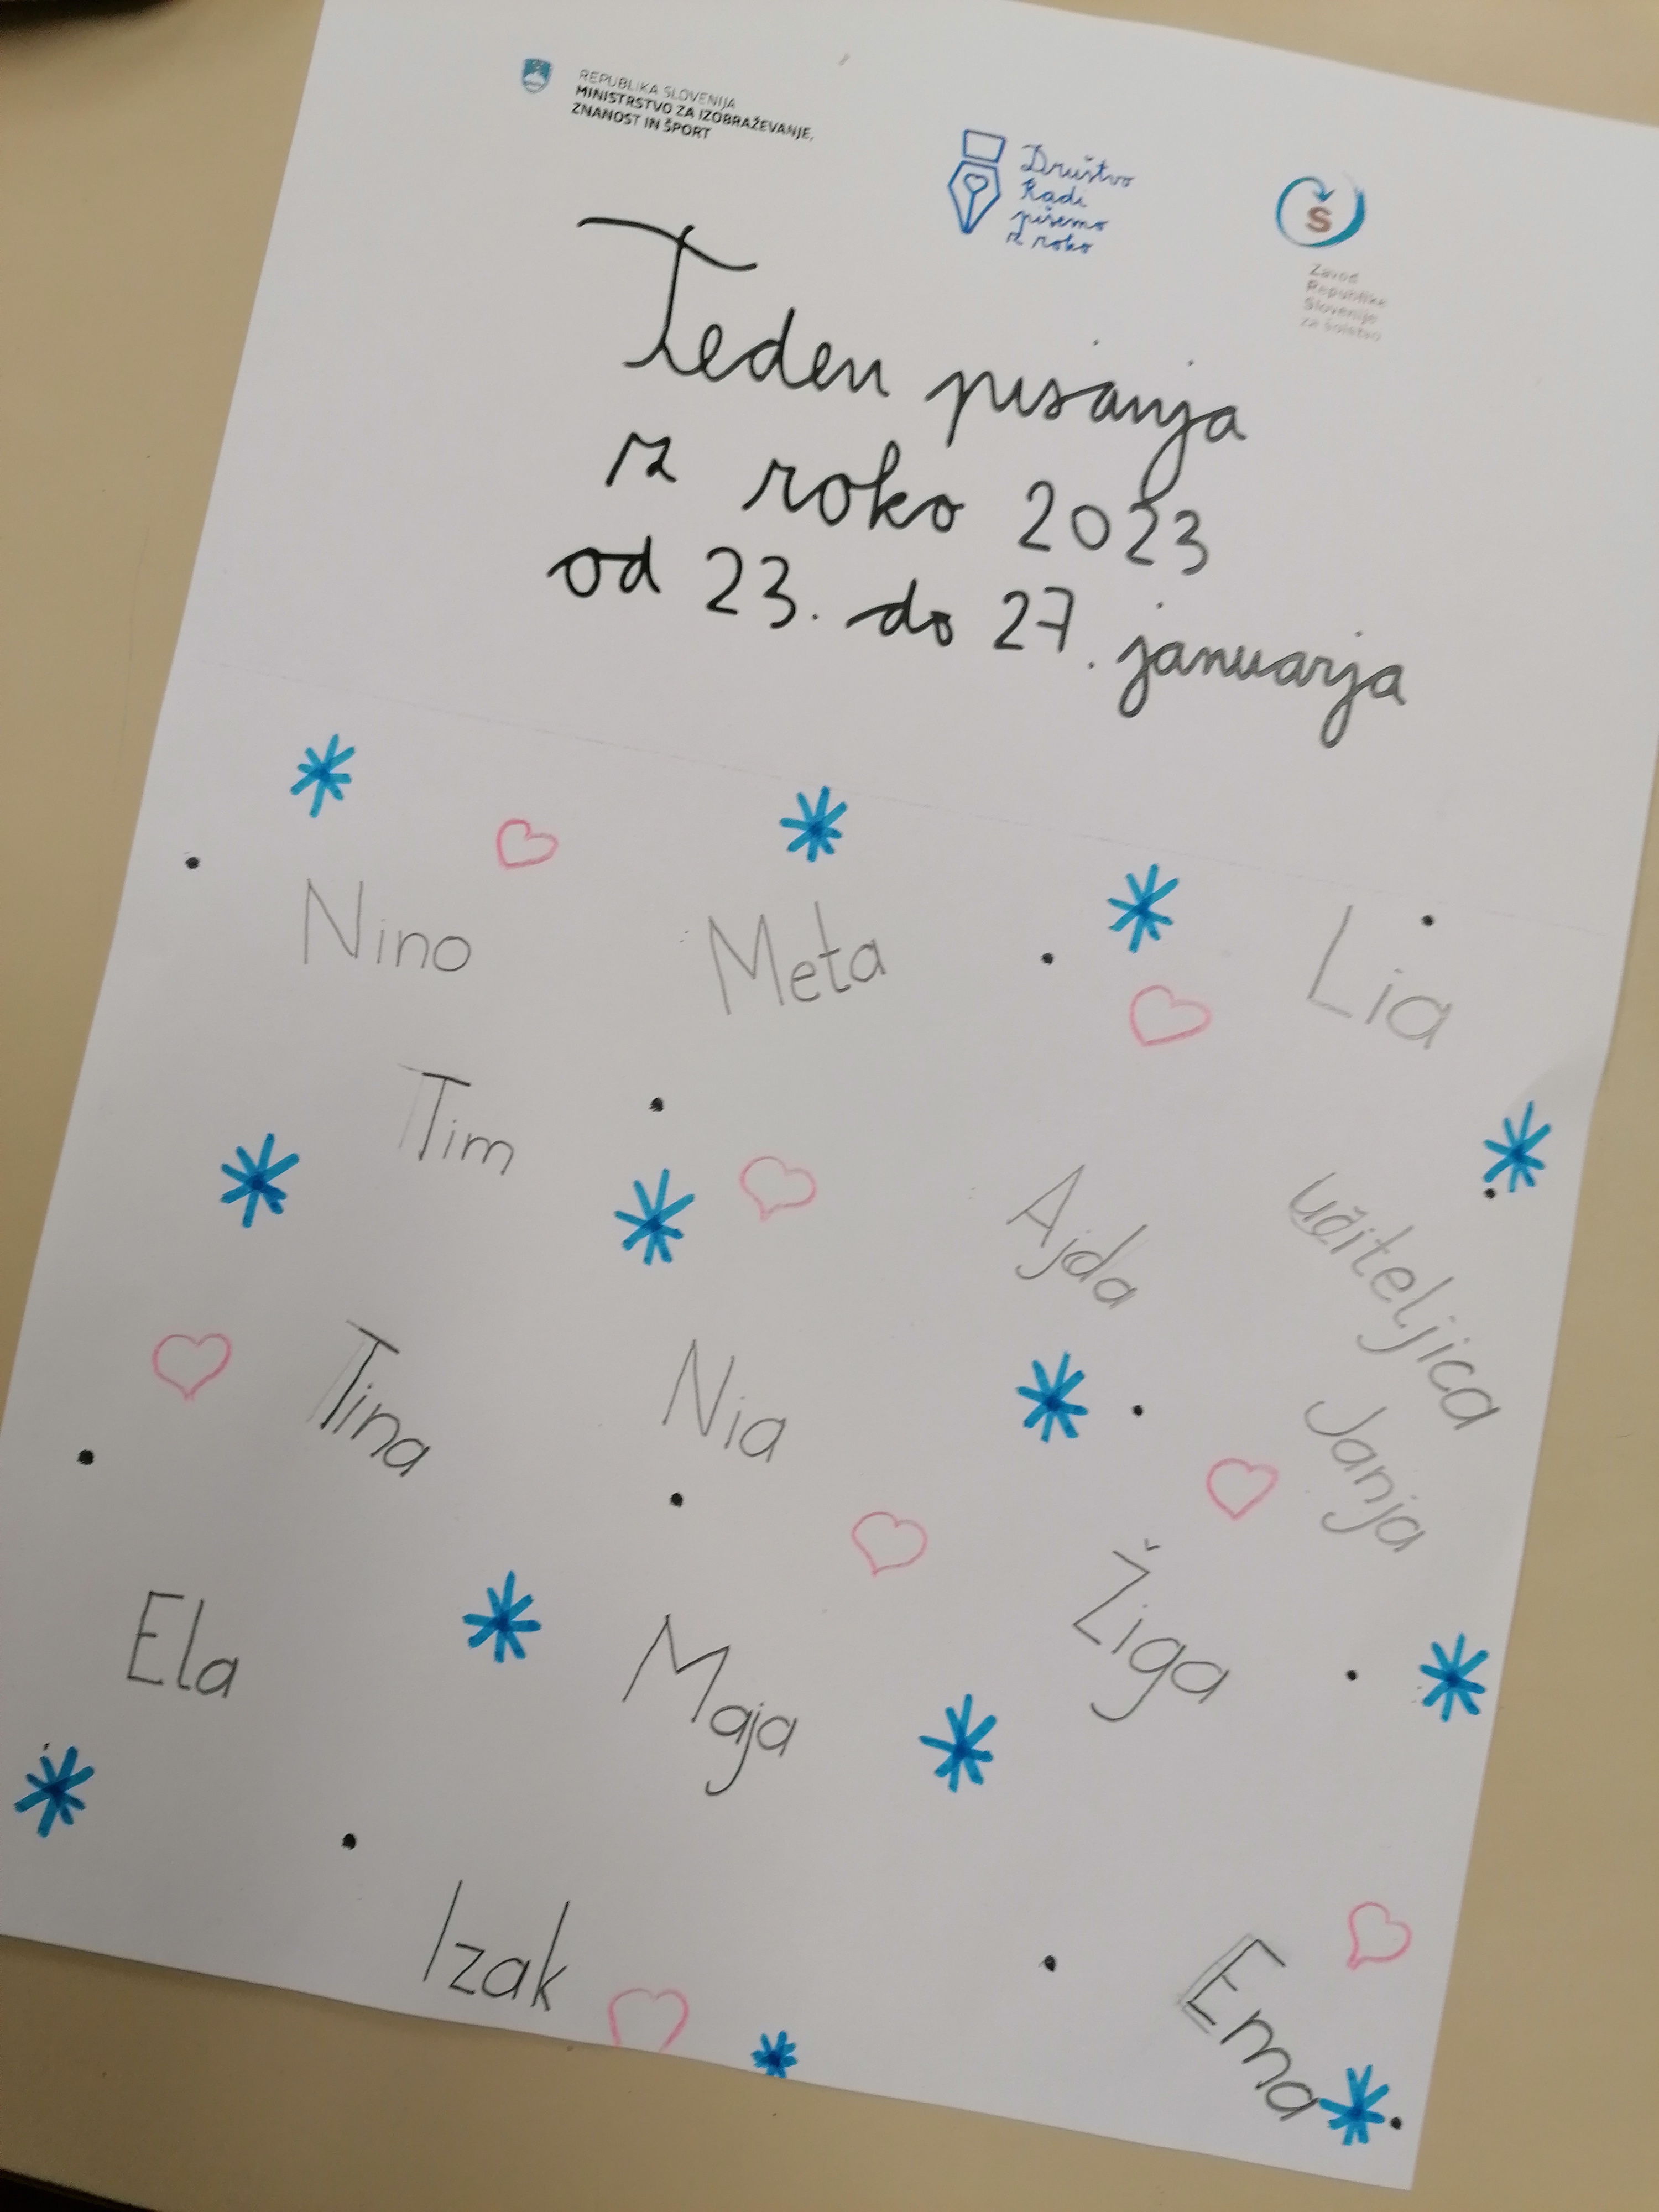 REPUBLIKA SLOVENIJA
MINISTRSTVO ZA IZOBRAŽEVANJE,
ZNANOST IN ŠPORT
Društvo
Radi
pišemo
z roko
S
Zavod
Republike
Slovenije
za šolstvo
Teden pisanja
z roko 2023
od 23. do 27. januarja
Nino
Meta
Lia
Tim
Ajda
učiteljica
Janja
Tina
Nia
Žiga
Ela
Maja
Izak
Ema